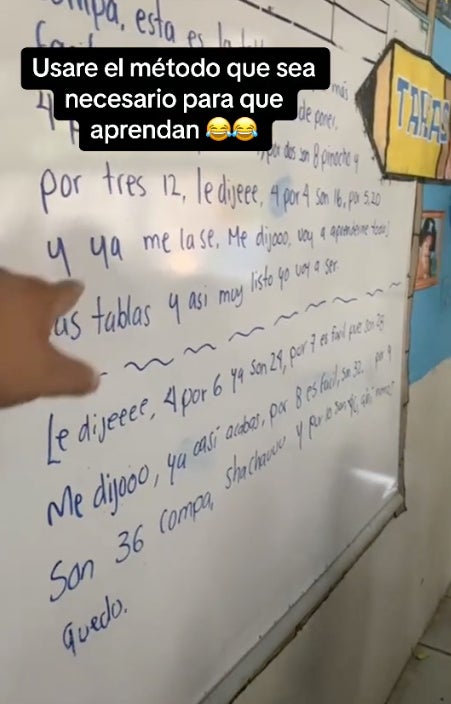 compa, esta es la
Usare el método que sea
necesario para que
aprendan 😂😂
más
de poner,
TARAS
por dos son 8 pinocho y
por tres 12, le dijeee, 4 por 4 son 16, por 5, 20
y ya me la se. Me dijooo, voy a aprenderme todas
las tablas y asi muy listo yo voy a ser.
Le dijeeee, 4 por 6 ya son 24, por 7 es facil pue son 28
Me dijooo, ya casi acabas, por 8 es facil, son 32. por 9
Son 36 compa, shachauuu y por 10 son 40, ahi nomas
quedo.